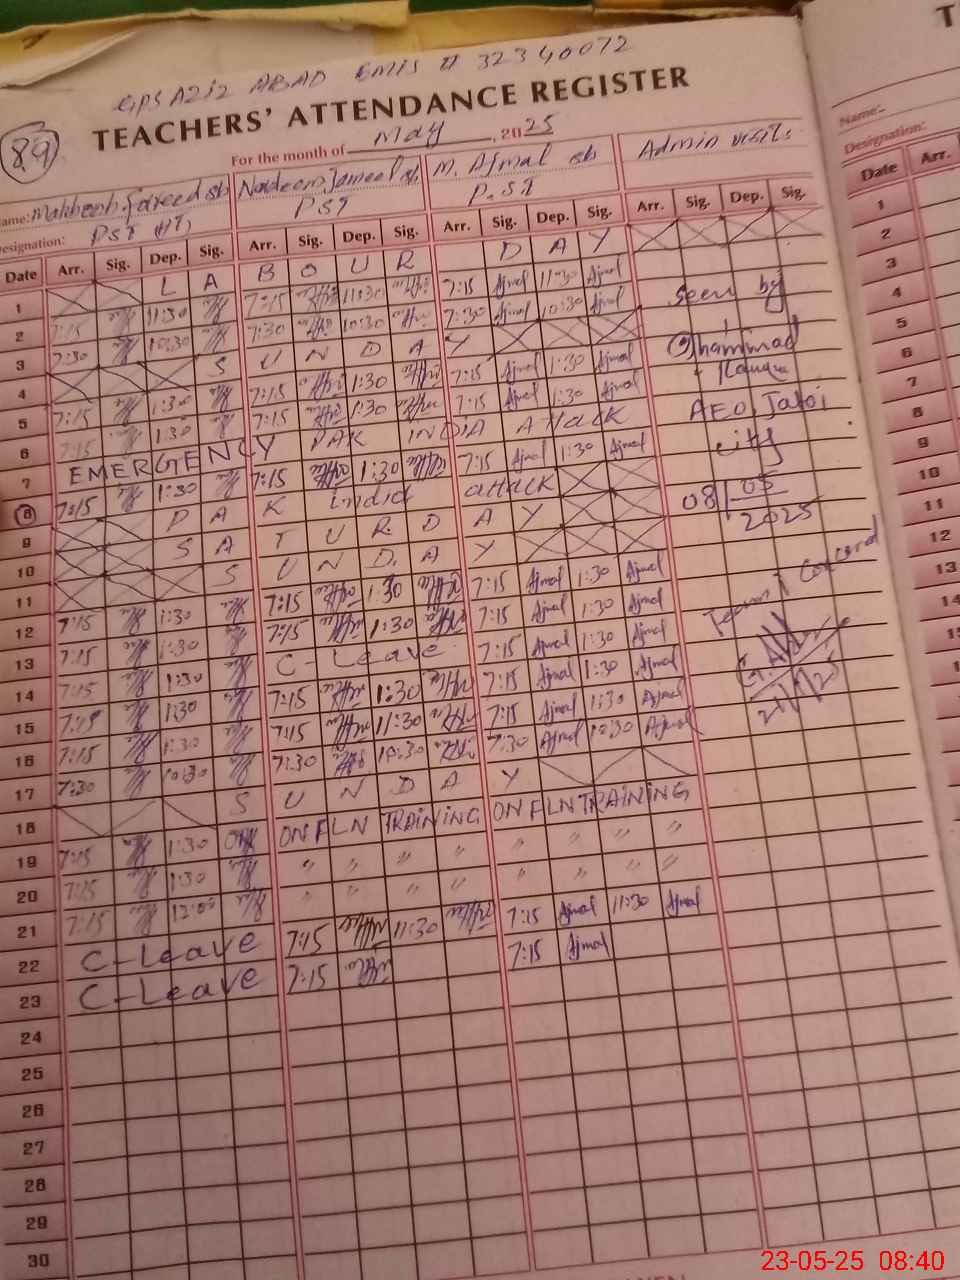 GPS AZIZ ABAD EMIS # 32340072
TEACHERS' ATTENDANCE REGISTER
89
For the month of May, 2025
Name: Mahboob Fareed sb Nadeem Jameel sb M. Ajmal sb Admin visits
Designation: PST (HT) PST P.ST
Date Arr. Sig. Dep. Sig. Arr. Sig. Dep. Sig. Arr. Sig. Dep. Sig. Arr. Sig. Dep. Sig.
1 L A B O U R D A Y
2 7:15 11:30 7:15 11:30 7:15 Ajmal 11:30 Ajmal
3 7:30 10:30 7:30 10:30 7:30 Ajmal 10:30 Ajmal
4 S U N D A Y
5 7:15 1:30 7:15 1:30 7:15 Ajmal 1:30 Ajmal
6 7:15 1:30 7:15 1:30 7:15 Ajmal 1:30 Ajmal
7 EMERGENCY PAK INDIA Attack
8 7:15 1:30 7:15 1:30 7:15 Ajmal 1:30 Ajmal
9 P A K India attack
10 S A T U R D A Y
11 S U N D A Y
12 7:15 1:30 7:15 1:30 7:15 Ajmal 1:30 Ajmal
13 7:15 1:30 7:15 1:30 7:15 Ajmal 1:30 Ajmal
14 7:15 1:30 C-Leave 7:15 Ajmal 1:30 Ajmal
15 7:15 1:30 7:15 1:30 7:15 Ajmal 1:30 Ajmal
16 7:15 1:30 7:15 11:30 7:15 Ajmal 1:30 Ajmal
17 7:30 10:30 7:30 10:30 7:30 Ajmal 10:30 Ajmal
18 S U N D A Y
19 7:15 1:30 ON FLN TRAINING ON FLN TRAINING
20 7:15 1:30 " " " " " " "
21 7:15 12:00 " " " " " " "
22 C-Leave 7:15 11:30 7:15 Ajmal 11:30 Ajmal
23 C-Leave 7:15 7:15 Ajmal
24
25
26
27
28
29
30
seen by
AEO Jatoi
city
08/05
2025
T
Name:
Designation:
Date Arr.
1
2
3
4
5
6
7
8
9
10
11
12
13
14
23-05-25 08:40